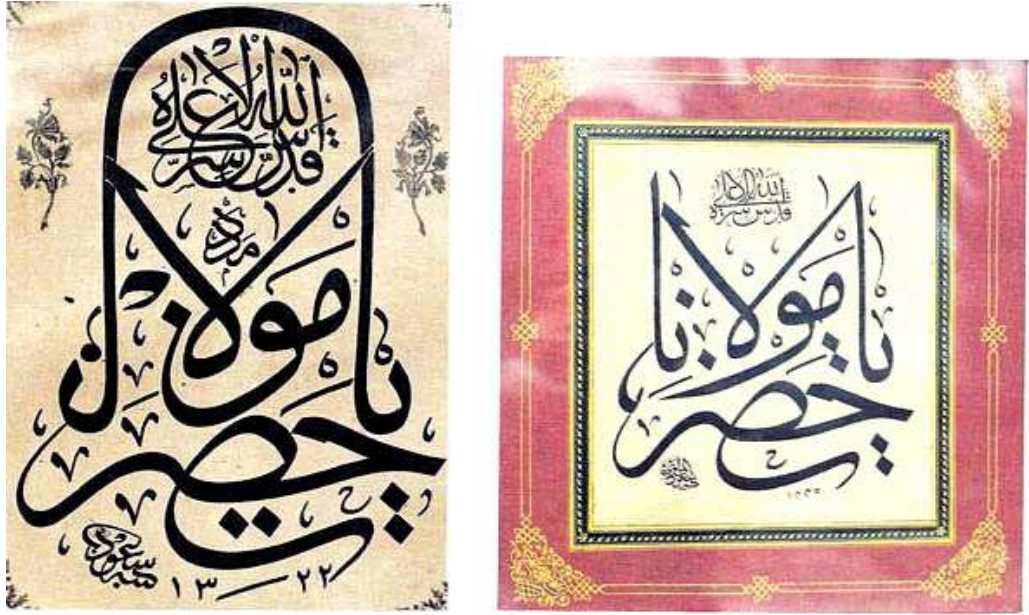 قدس الله سره الاعلى
مدد
يا حضرت مولانا
١٣٢٢
قدس الله سره الاعلى
يا حضرت مولانا